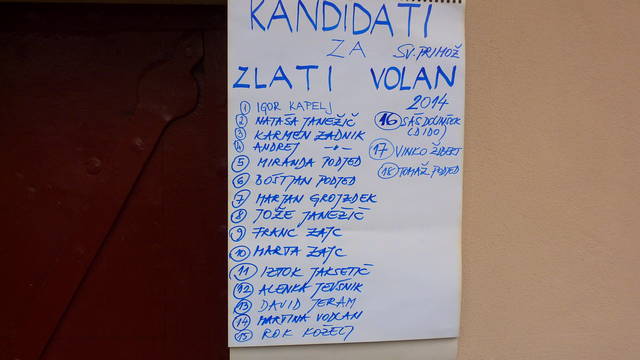 KANDIDATI
ZA
SV. PRIMOŽ
ZLATI VOLAN
2014
1 IGOR KAPELJ
2 NATAŠA JANEŽIČ
3 KARMEN ZADNIK
4 ANDREJ -"-
5 MIRANDA PODJED
6 BOŠTJAN PODJED
7 MARJAN GROJZDEK
8 JOŽE JANEŽIČ
9 FRANC ZAJC
10 MARTA ZAJC
11 IZTOK JAKSETIČ
12 ALENKA JEVŠNIK
13 DAVID JERAM
14 MARTINA VODLAN
15 ROK KOŽELJ
16 SAŠ DOLINŠEK
(DIDO)
17 VINKO
18 TOMAŽ PODJED